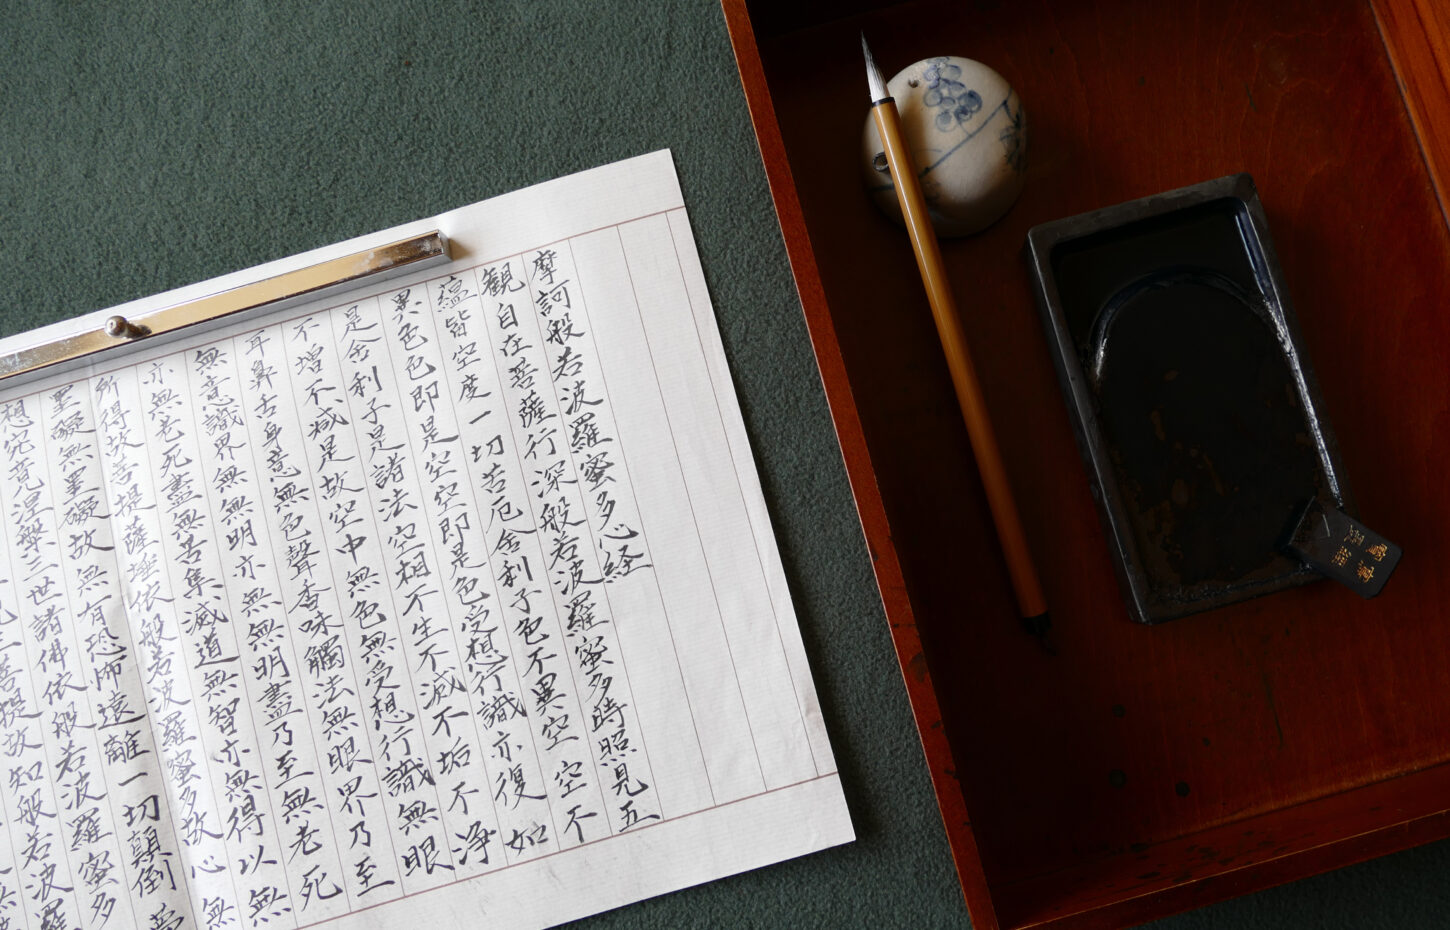 摩訶般若波羅蜜多心経
観自在菩薩行深般若波羅蜜多時照見五
蘊皆空度一切苦厄舎利子色不異空空不
異色色即是空空即是色受想行識亦復如
是舎利子是諸法空相不生不滅不垢不浄
不増不減是故空中無色無受想行識無眼
耳鼻舌身意無色聲香味觸法無眼界乃至
無意識界無無明亦無無明盡乃至無老死
亦無老死盡無苦集滅道無智亦無得以無
所得故菩提薩埵依般若波羅蜜多故心無
罣礙無罣礙故無有恐怖遠離一切顛倒夢
想究竟涅槃三世諸佛依般若波羅蜜多
菩提故知般若波羅